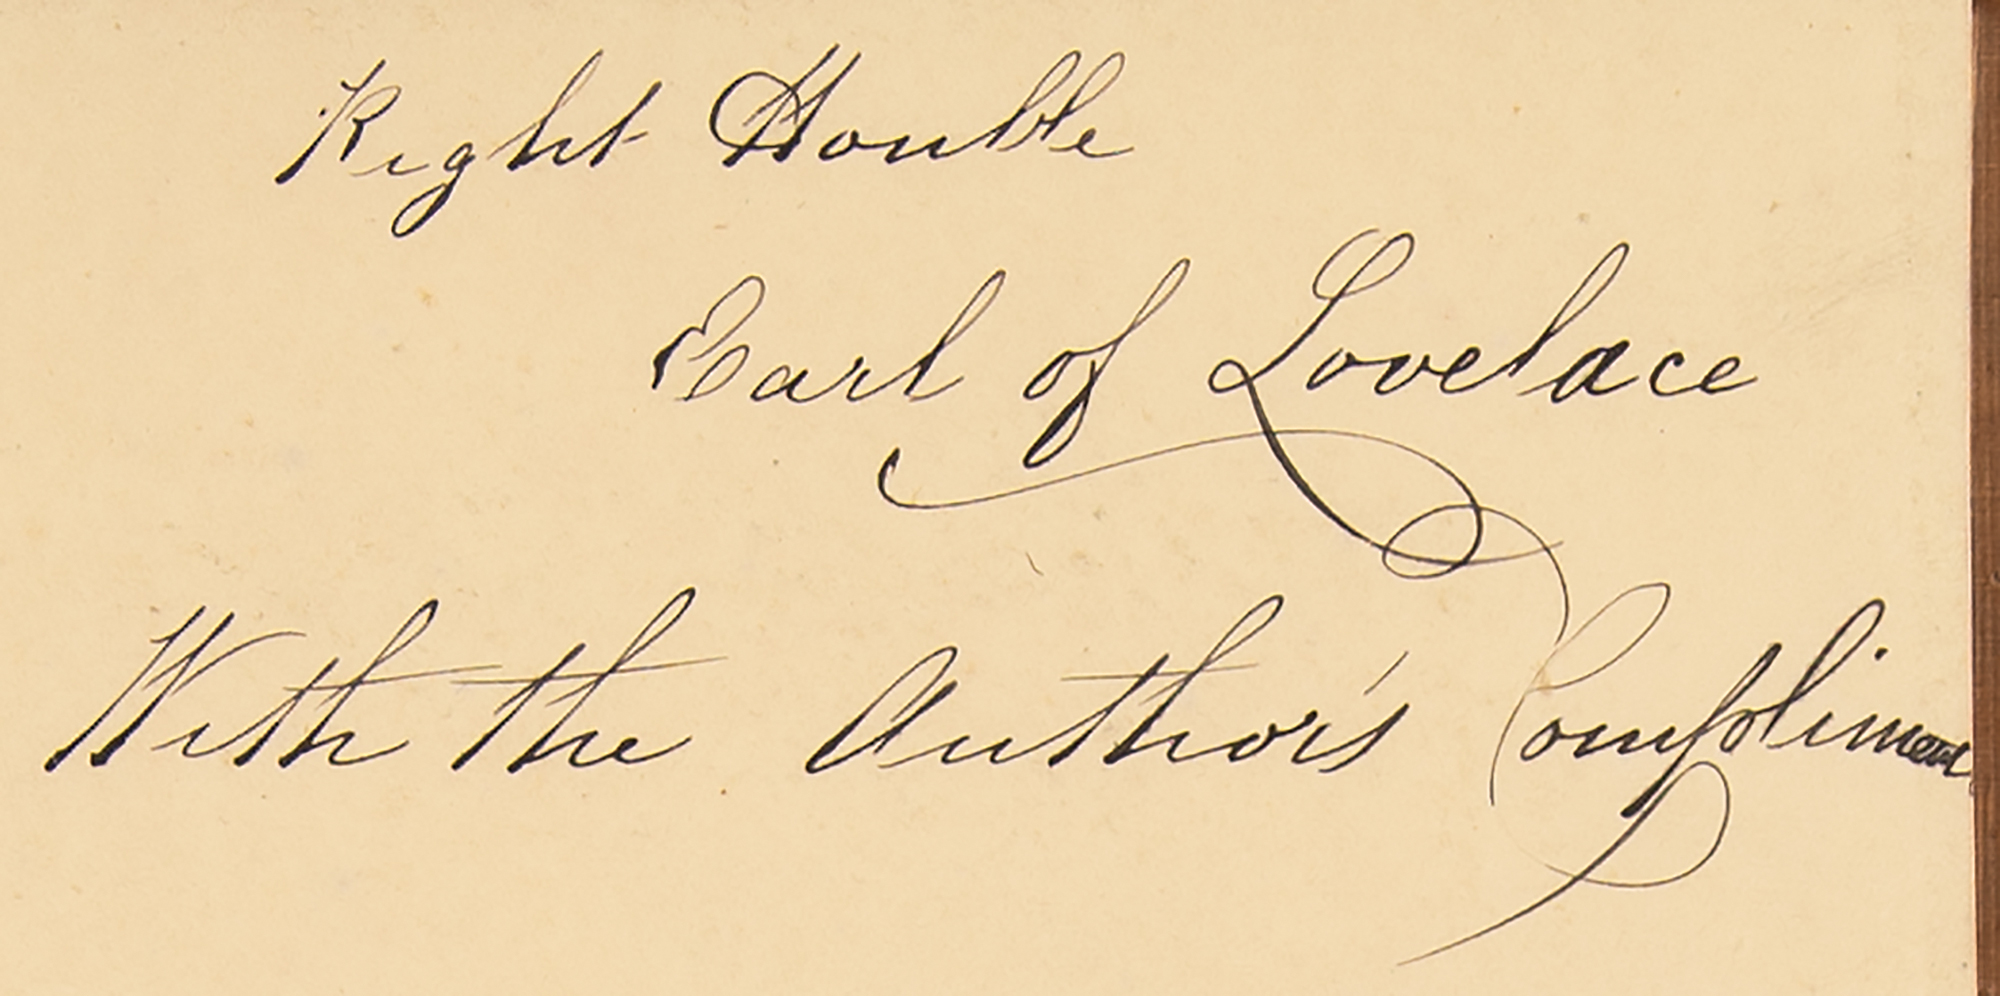 Right Honble
Earl of Lovelace
With the Author's Complimen